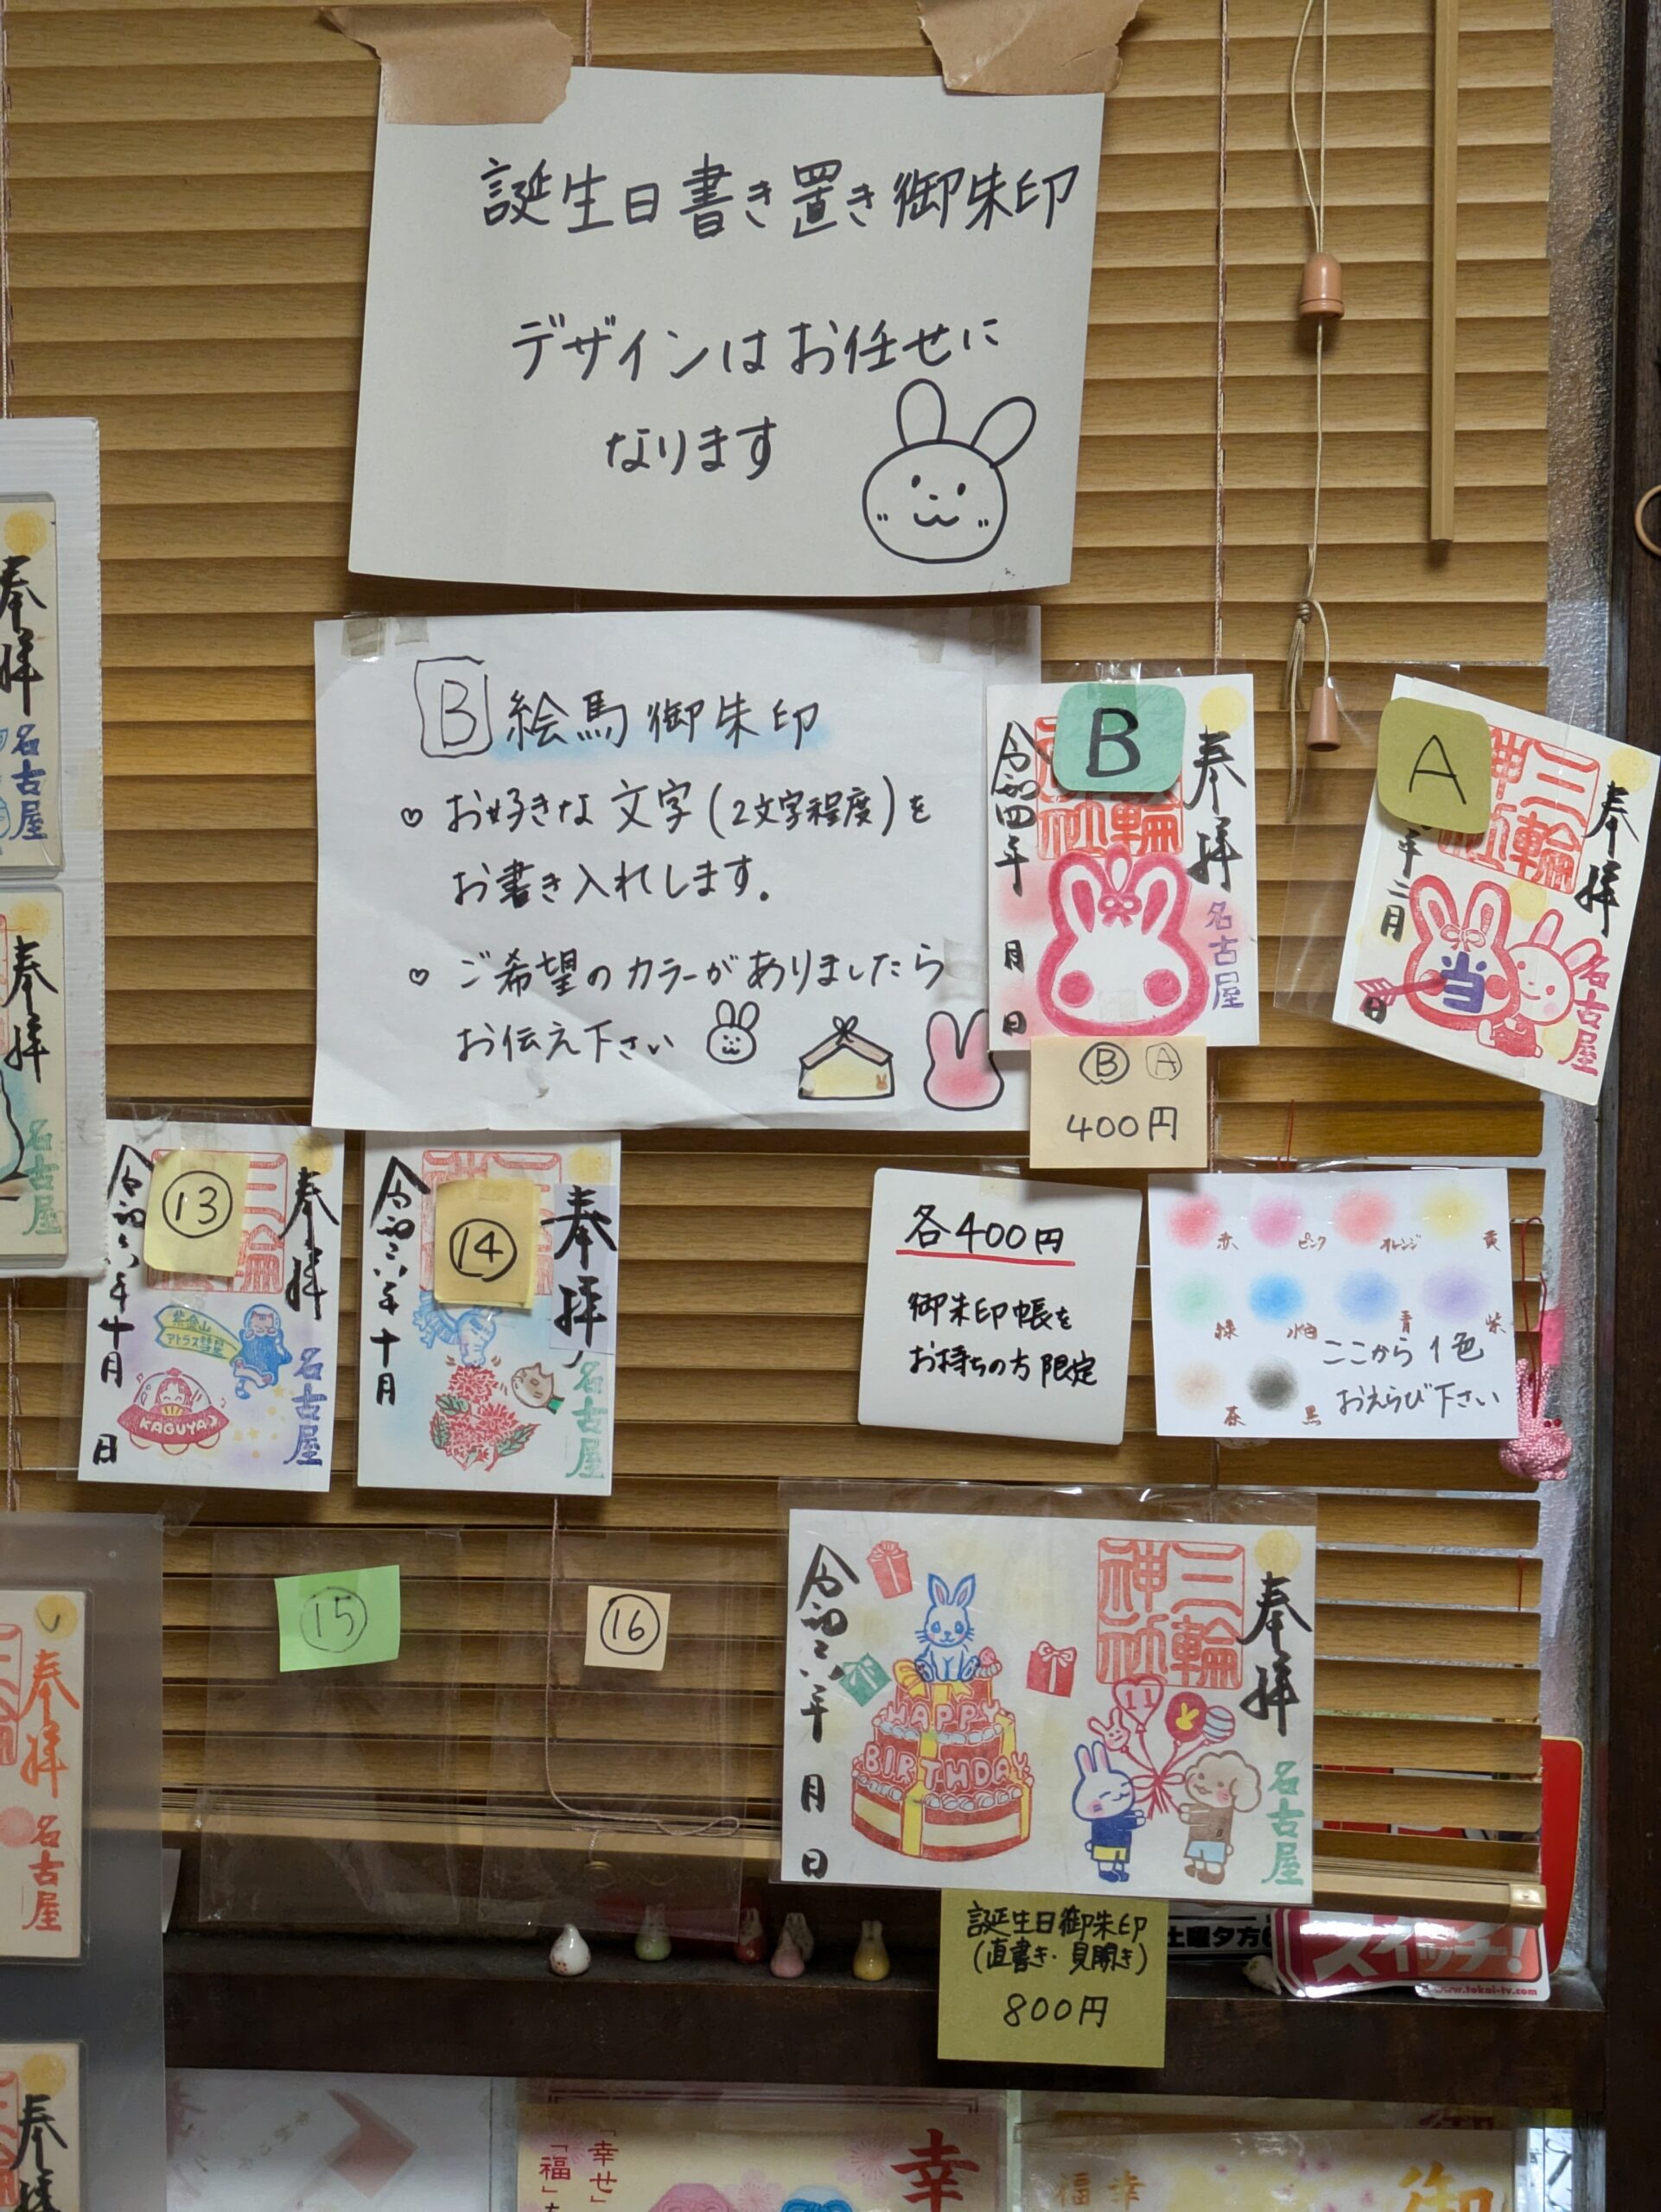 誕生日書き置き御朱印
デザインはお任せに
なります
B 絵馬御朱印
♡ お好きな文字(2文字程度)を
お書き入れします。
♡ ご希望のカラーがありましたら
お伝え下さい
B
奉拝
三輪
令和四年 月 日
名古屋
A
奉拝
三輪
神社
年二月 日
当
名古屋
Ⓑ Ⓐ
400円
奉拝
名古屋
奉拝
名古屋
⑬
奉拝
三輪
令和六年十月 日
アトラス
KAGUYA
名古屋
⑭
奉拝
令和六年十月
名古屋
各400円
御朱印帳を
お持ちの方限定
赤 ピンク オレンジ 黄
緑 水色 青 紫
茶 黒
ここから1色
おえらび下さい
⑮
⑯
奉拝
三輪
神社
令和六年 月 日
HAPPY
BIRTHDAY
11
名古屋
誕生日御朱印
(直書き・見開き)
800円
土曜夕方
スイッチ!
www.tokai-tv.com
奉拝
名古屋
奉拝
「幸せ」
「福」
幸
福 幸
御